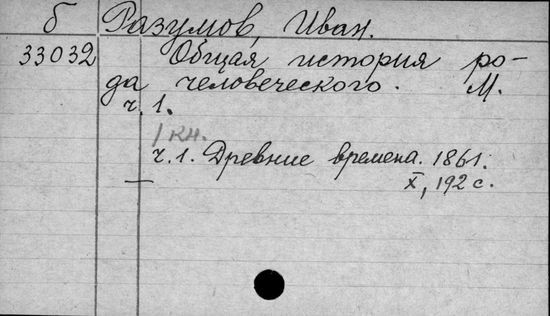 б Разумов, Иван.
33032 Общая история ро-
да человеческого. М.
ч. 1.
1 кн.
ч. 1. Древние времена. 1861.
— X, 192 с.